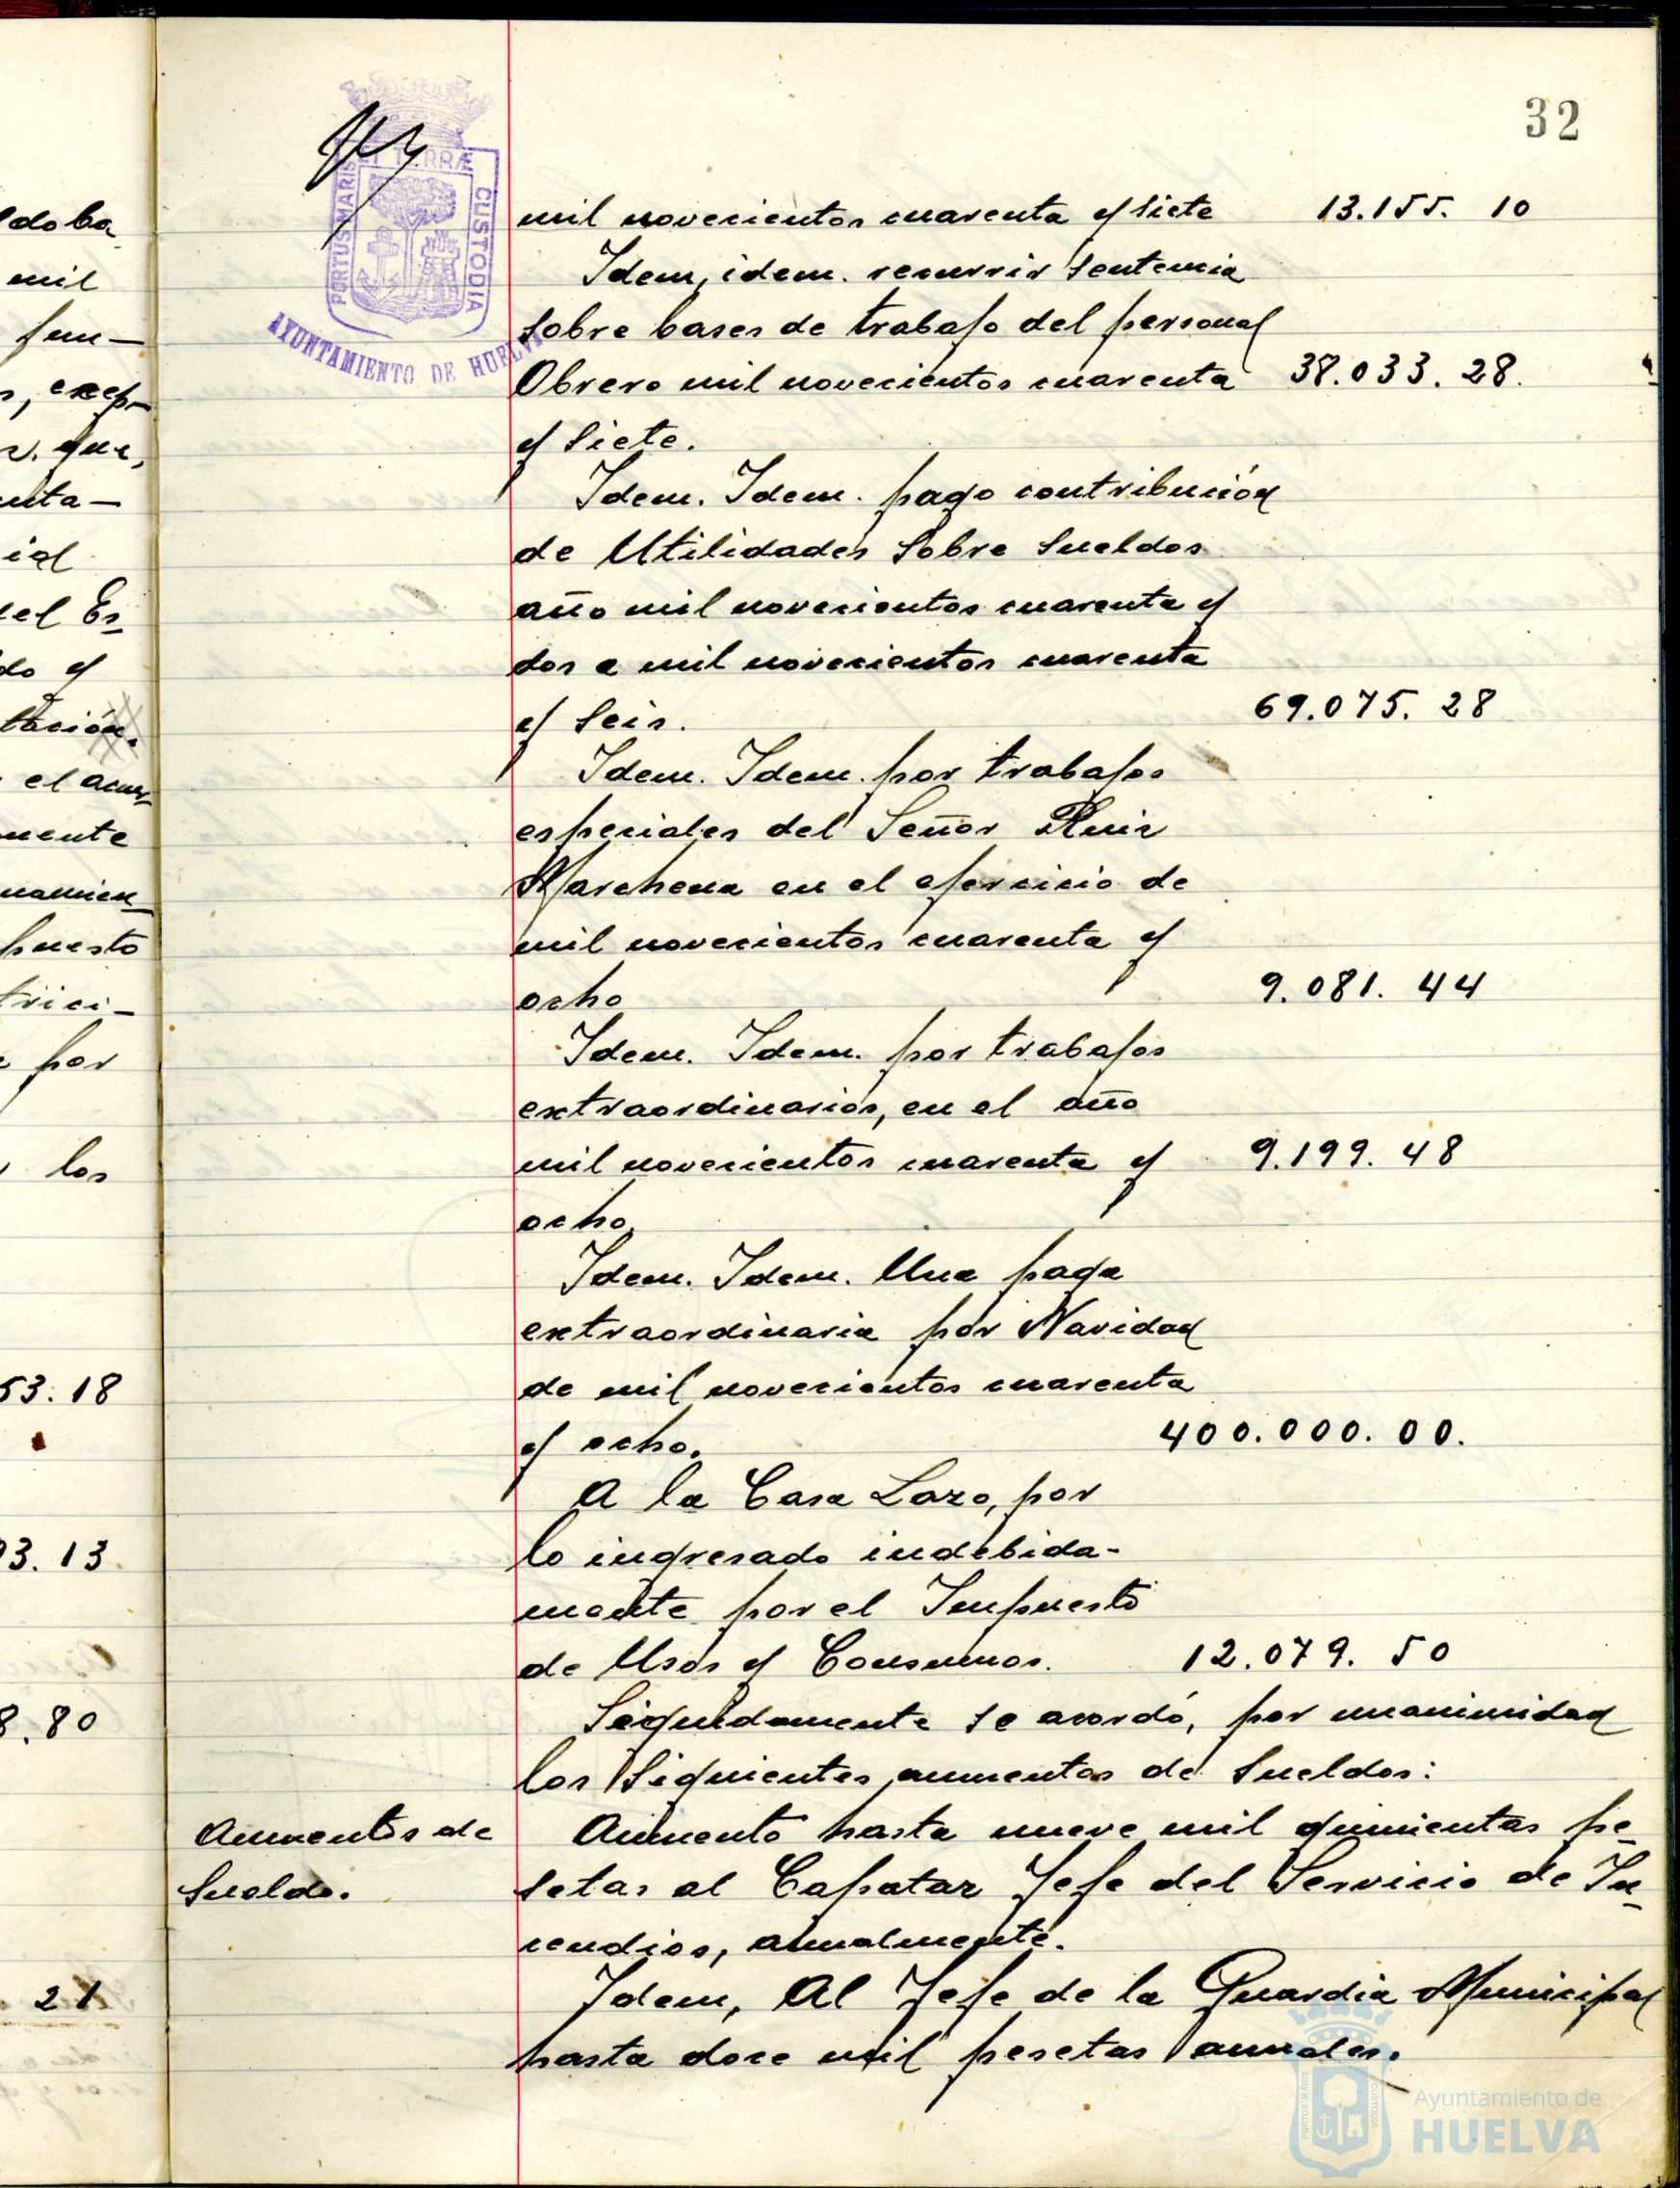 32
PORTUS MARIS ET TERRÆ CUSTODIA
AYUNTAMIENTO DE HUELVA
mil novecientos cuarenta y siete 13.155. 10
Idem, idem. recurrir sentencia
sobre bases de trabajo del personal
Obrero mil novecientos cuarenta 38.033. 28.
y siete.
Idem. Idem. pago contribución
de Utilidades sobre sueldos
año mil novecientos cuarenta y
dos a mil novecientos cuarenta
y seis. 69.075. 28
Idem. Idem. por trabajos
especiales del Señor Ruiz
Marchena en el ejercicio de
mil novecientos cuarenta y
ocho 9.081. 44
Idem. Idem. por trabajos
extraordinarios, en el año
mil novecientos cuarenta y 9.199. 48
ocho.
Idem. Idem. Una paga
extraordinaria por Navidad
de mil novecientos cuarenta
y ocho. 400.000. 00.
A la Casa Lazo, por
lo ingresado indebida-
mente por el Impuesto
de Usos y Consumos. 12.079. 50
Seguidamente se acordó, por unanimidad
los siguientes aumentos de sueldos:
Aumentos de
Sueldo.
Aumento hasta nueve mil quinientas pe-
setas al Capataz Jefe del Servicio de In-
cendios, anualmente.
Idem, Al Jefe de la Guardia Municipal
hasta doce mil pesetas anuales.
mil
, excep-
. que,
el Es-
do y
el acuer-
puesto
por
los
53. 18
93. 13
8. 80
21
Ayuntamiento de
HUELVA